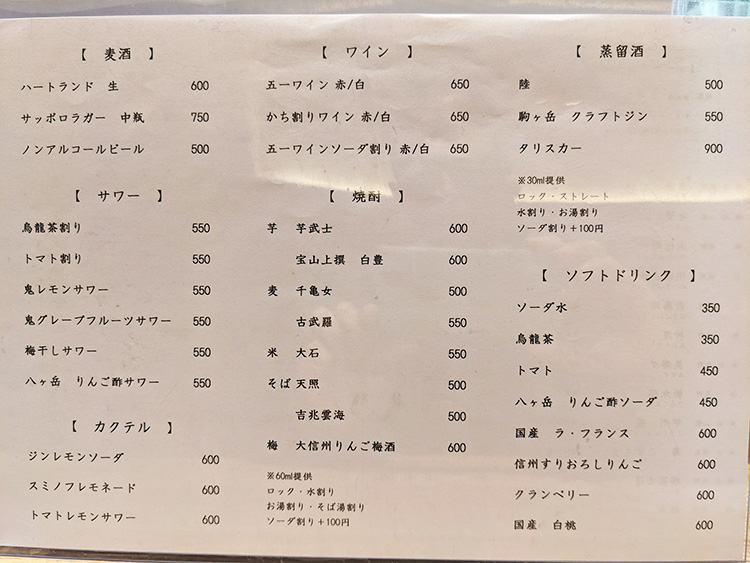 【 麦酒 】
ハートランド 生 600
サッポロラガー 中瓶 750
ノンアルコールビール 500
【 サワー 】
烏龍茶割り 550
トマト割り 550
鬼レモンサワー 550
鬼グレープフルーツサワー 550
梅干しサワー 550
八ヶ岳 りんご酢サワー 550
【 カクテル 】
ジンレモンソーダ 600
スミノフレモネード 600
トマトレモンサワー 600
【 ワイン 】
五一ワイン 赤/白 650
かち割りワイン 赤/白 650
五一ワインソーダ割り 赤/白 650
【 焼酎 】
芋 芋武士 600
宝山上撰 白豊 600
麦 千亀女 500
古武羅 550
米 大石 550
そば 天照 500
吉兆雲海 500
梅 大信州りんご梅酒 600
※60ml提供
ロック・水割り
お湯割り・そば湯割り
ソーダ割り+100円
【 蒸留酒 】
陸 500
駒ヶ岳 クラフトジン 550
タリスカー 900
※30ml提供
ロック・ストレート
水割り・お湯割り
ソーダ割り+100円
【 ソフトドリンク 】
ソーダ水 350
烏龍茶 350
トマト 450
八ヶ岳 りんご酢ソーダ 450
国産 ラ・フランス 600
信州すりおろしりんご 600
クランベリー 600
国産 白桃 600